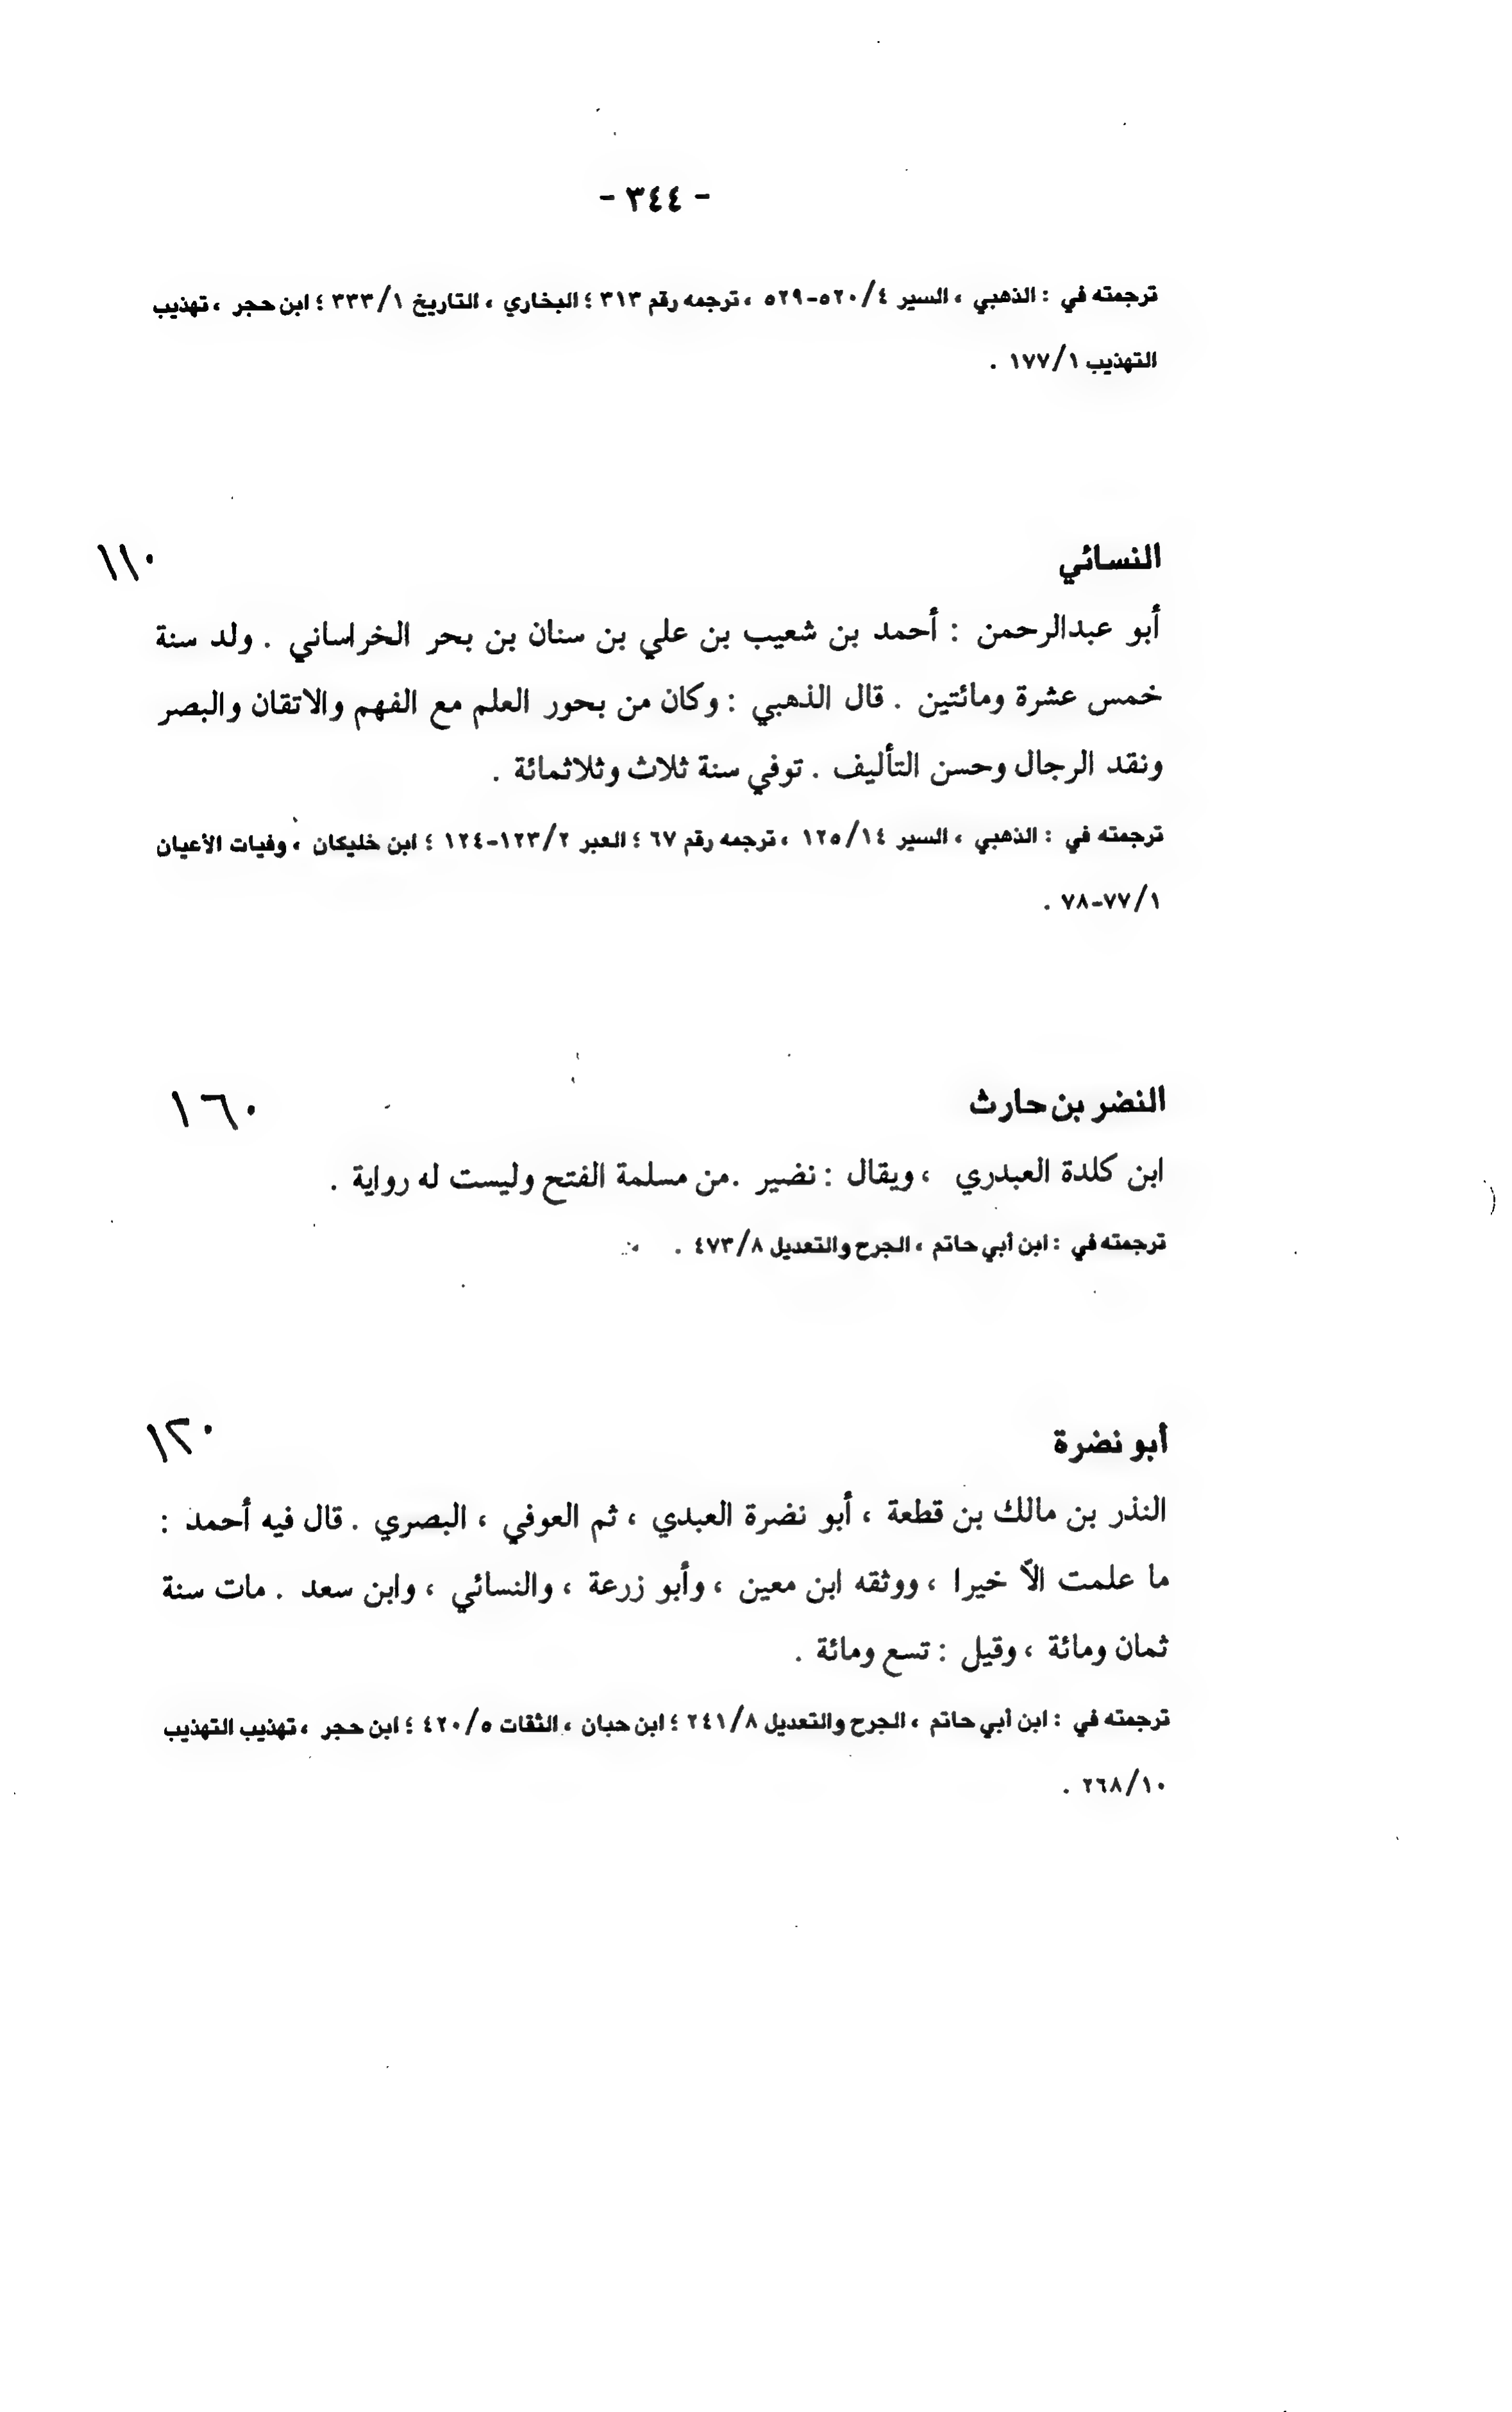 - ٣٤٤ -
ترجمته في : الذهبي ، السير ٤/ ٥٢٠-٥٢٩ ، ترجمه رقم ٣١٣ ؛ البخاري ، التاريخ ١/ ٣٣٣ ؛ ابن حجر ، تهذيب
التهذيب ١/ ١٧٧ .
النسائي ١١٠
أبو عبدالرحمن : أحمد بن شعيب بن علي بن سنان بن بحر الخراساني . ولد سنة
خمس عشرة ومائتين . قال الذهبي : وكان من بحور العلم مع الفهم والاتقان والبصر
ونقد الرجال وحسن التأليف . توفي سنة ثلاث وثلاثمائة .
ترجمته في : الذهبي ، السير ١٤/ ١٢٥ ، ترجمه رقم ٦٧ ؛ العبر ٢/ ١٢٣-١٢٤ ؛ ابن خليكان ، وفيات الأعيان
١/ ٧٧-٧٨ .
النضر بن حارث ١٦٠
ابن كلدة العبدري ، ويقال : نضير .من مسلمة الفتح وليست له رواية .
ترجمته في : ابن أبي حاتم ، الجرح والتعديل ٨/ ٤٧٣ .
أبو نضرة ١٢٠
النذر بن مالك بن قطعة ، أبو نضرة العبدي ، ثم العوفي ، البصري . قال فيه أحمد :
ما علمت الاّ خيرا ، ووثقه ابن معين ، وأبو زرعة ، والنسائي ، وابن سعد . مات سنة
ثمان ومائة ، وقيل : تسع ومائة .
ترجمته في : ابن أبي حاتم ، الجرح والتعديل ٨/ ٢٤١ ؛ ابن حبان ، الثقات ٥/ ٤٢٠ ؛ ابن حجر ، تهذيب التهذيب
١٠/ ٢٦٨ .